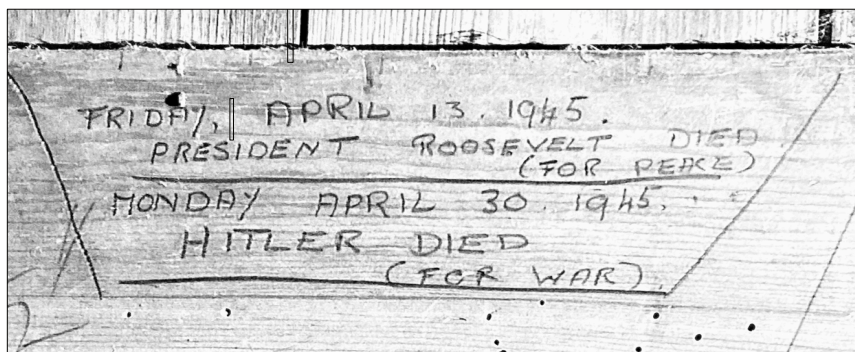 FRIDAY, APRIL 13. 1945.
PRESIDENT ROOSEVELT DIED
(FOR PEACE)
MONDAY APRIL 30. 1945.
HITLER DIED
(FOR WAR)